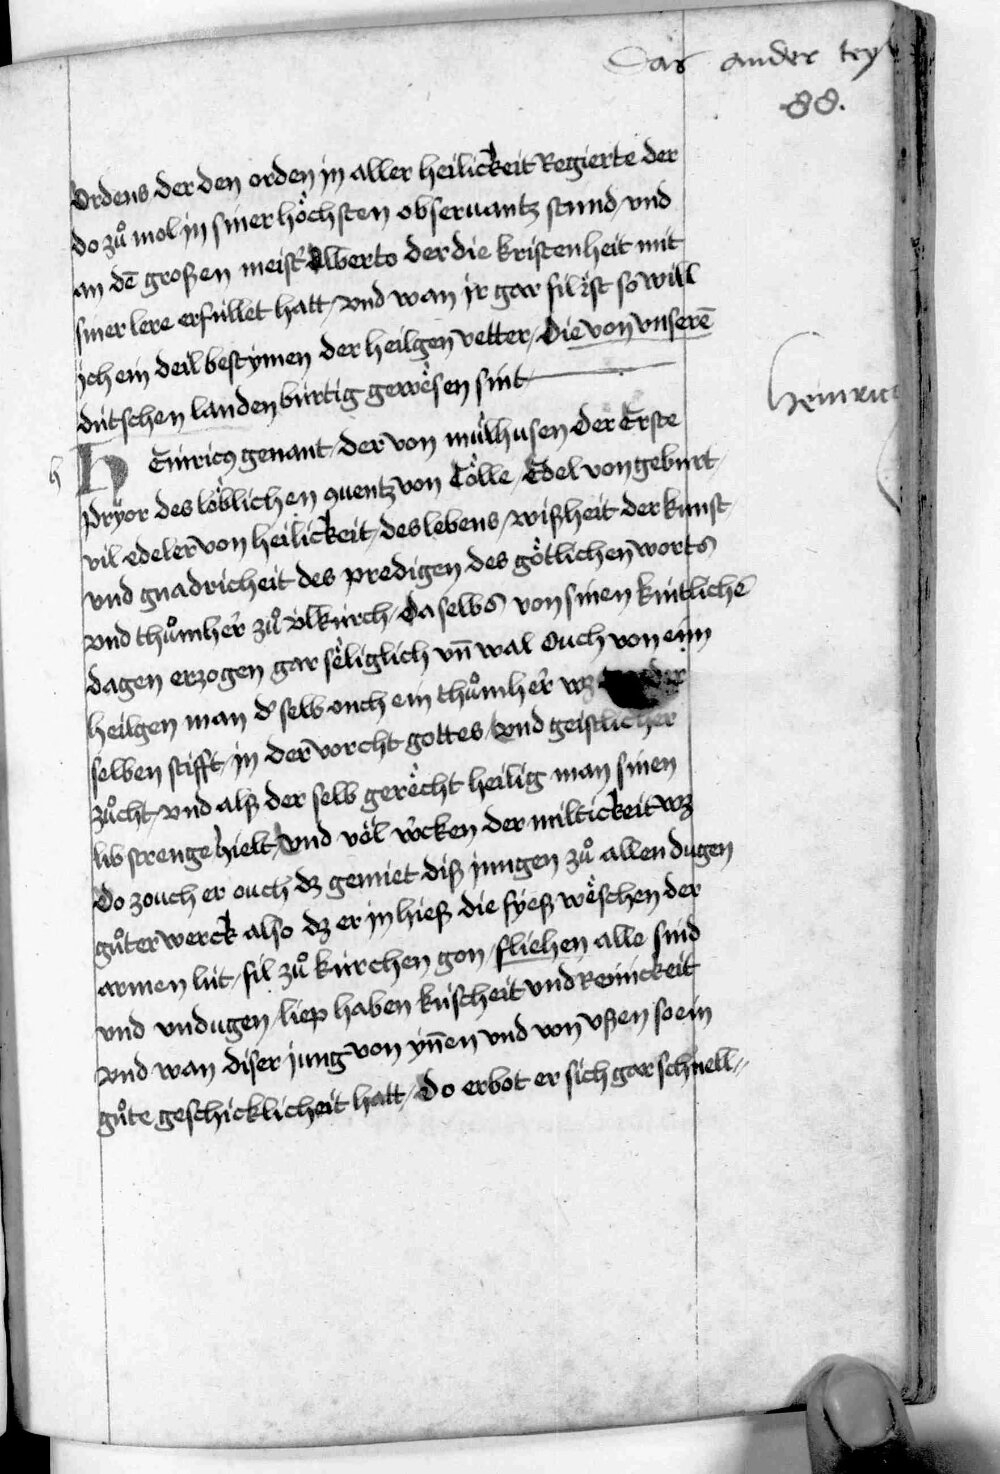 Das ander tey
88.
Ordens der den orden jn aller heilickeit Regierte der
do zů mol jn siner höchsten obseruantz stund / vnd
an dē großen meist' Alberto der die kristenheit mit
siner lere erfüllet hatt / vnd wan jr gar fil ist so will
jch ein deil bestymen der heilgen vetter / die von vnserē
dütschen landen bürtig gewesen sint
Heinric
h
HEinricꝯ genant / der von mülhusen Der Erste
pryor des löblichen 9uentz von Cölle / Edel von geburt /
vil edeler von heilickeit / des lebens / wißheit der kunst /
vnd gnadricheit des predigen des götlichen worts
vnd thůmher zů vlkirch / Daselbs von sinen kintlichē
dagen erzogen gar seliglich vn̄ wal Ouch von eim
heilgen man d' selb ouch ein thůmher wz der
selben stifft / jn der vorcht gottes / vnd geistlicher
zůcht / vnd alß der selb gerecht heilig man sinen
lib strenge hielt / vnd völ wcken der miltickeit wz
Do zouch er ouch dz gemiet diß jungen zů allen dugen
gůter werck also dz er jn hieß die fyeß weschen der
armen lüt / fil zů kirchen gon / fliehen alle sind
vnd vndugen / liep haben küscheit vnd Reinickeit
vnd wan diser jung von yn̄en vnd von vßen so ein
gůte geschicklicheit hatt / Do erbot er sich gar schnell=